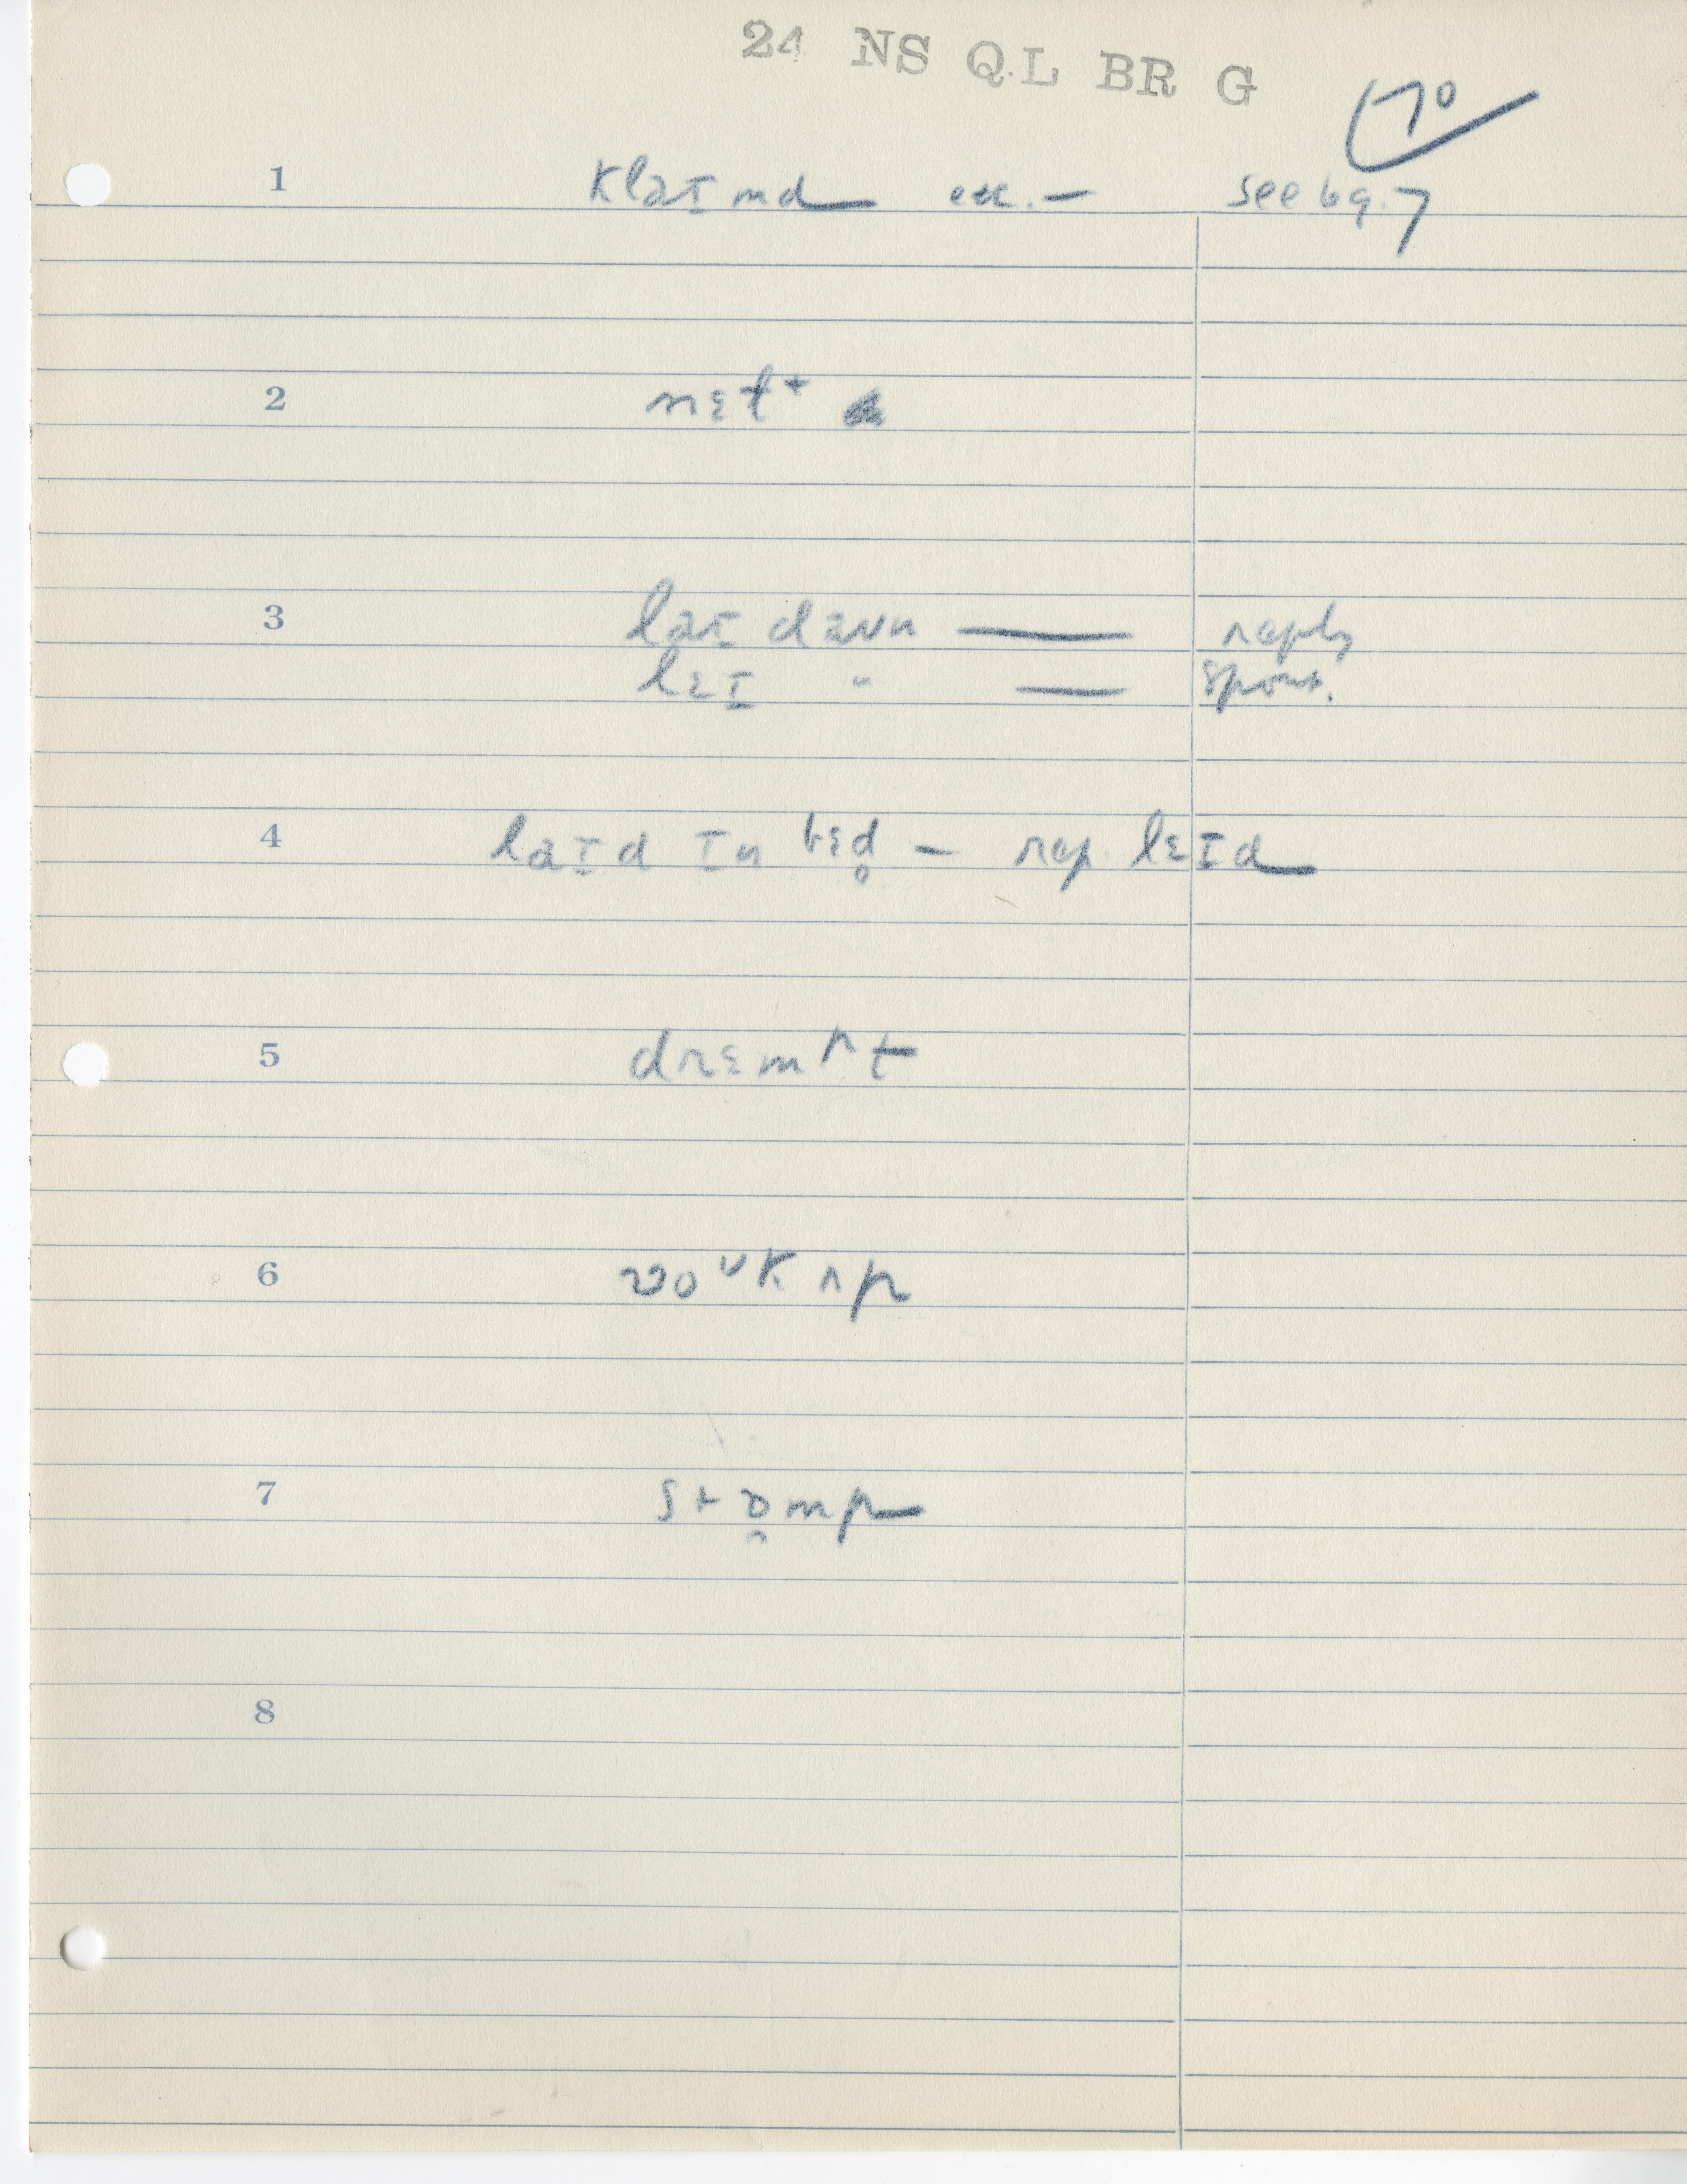 24 NS QL BR G
70
1 klaɪmd etc. — see bq. 7
2 nɛt⁺
3 laɪ daʊn — reply
lɛɪ " — spont.
4 laɪd ɪn bɛd̥ — rep. lɛɪd
5 drɛmᵖt
6 woᵘk ʌp
7 stɒmp
8